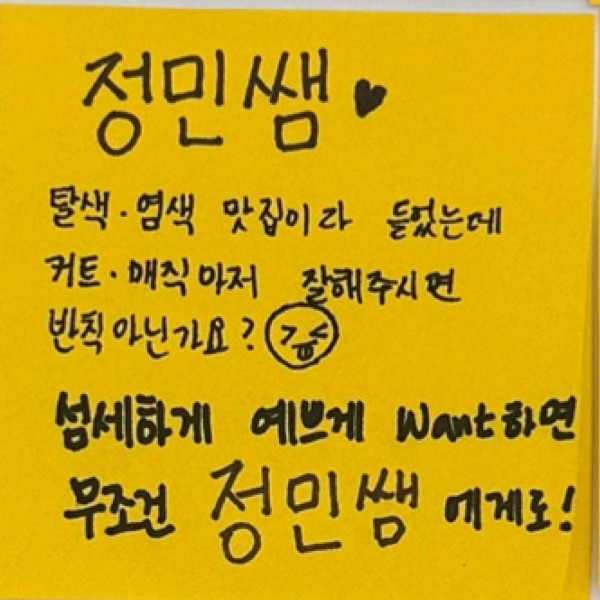 정민쌤♥
탈색·염색 맛집이라 듣었는데
커트·매직마저 잘해주시면
반칙아닌가요?
섬세하게 예쁘게 want하면
무조건 정민쌤에게로!